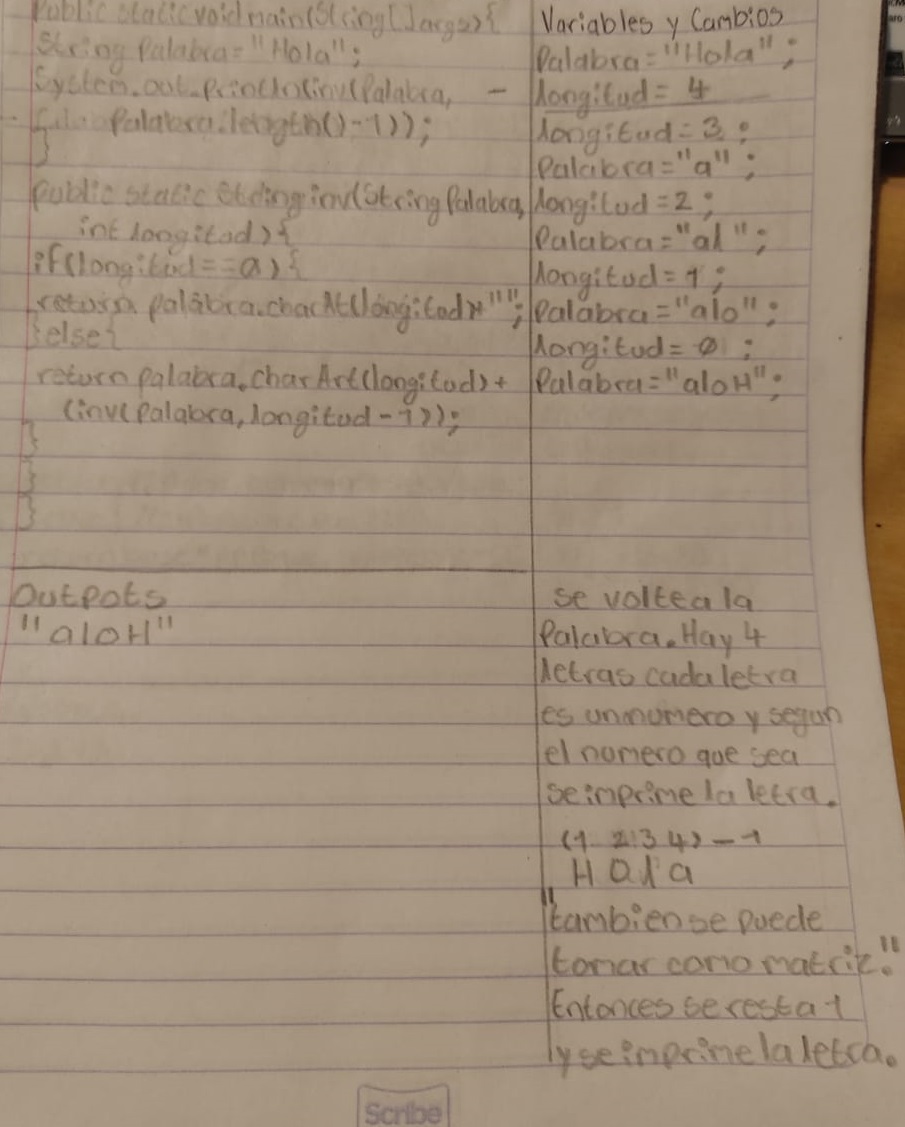 Public static void main(String[]args){
String Palabra="Hola";
System.out.println(inv(Palabra,
Palabra.length()-1));
}
public static String inv(String Palabra,
int longitud){
if(longitud==0){
return palabra.charAt(longitud)+"";
}else{
return palabra.charArt(longitud)+
(inv(Palabra,longitud-1));
}
}
}
Outpots
"aloH"
Variables y Cambios
Palabra="Hola";
longitud=4
longitud=3;
Palabra="a";
longitud=2;
Palabra="al";
longitud=1;
Palabra="alo";
longitud=0;
Palabra="aloH";
se voltea la
Palabra. Hay 4
letras cada letra
es un numero y segun
el numero que sea
se imprime la letra.
(1 2 3 4)-1
H o l a
"tambien se puede
tomar como matriz."
Entonces se resta 1
y se imprime la letra.
Scribe